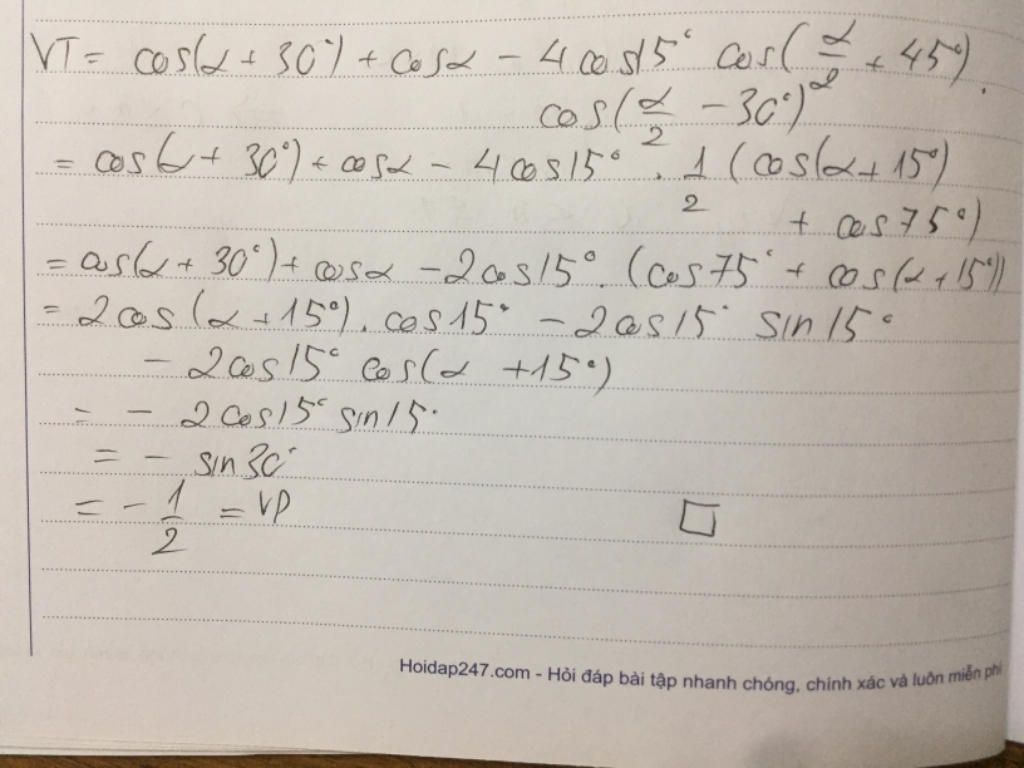 VT = cos(α + 30°) + cosα - 4cos15° cos(α/2 + 45°).
cos(α/2 - 30°)
= cos(α + 30°) + cosα - 4cos15° . 1/2 (cos(α + 15°)
+ cos75°)
= cos(α + 30°) + cosα - 2cos15° . (cos75° + cos(α + 15°))
= 2cos(α + 15°) . cos15° - 2cos15° sin15°
- 2cos15° cos(α + 15°)
= - 2cos15° sin15°
= - sin30°
= - 1/2 = VP □
Hoidap247.com - Hỏi đáp bài tập nhanh chóng, chính xác và luôn miễn phí